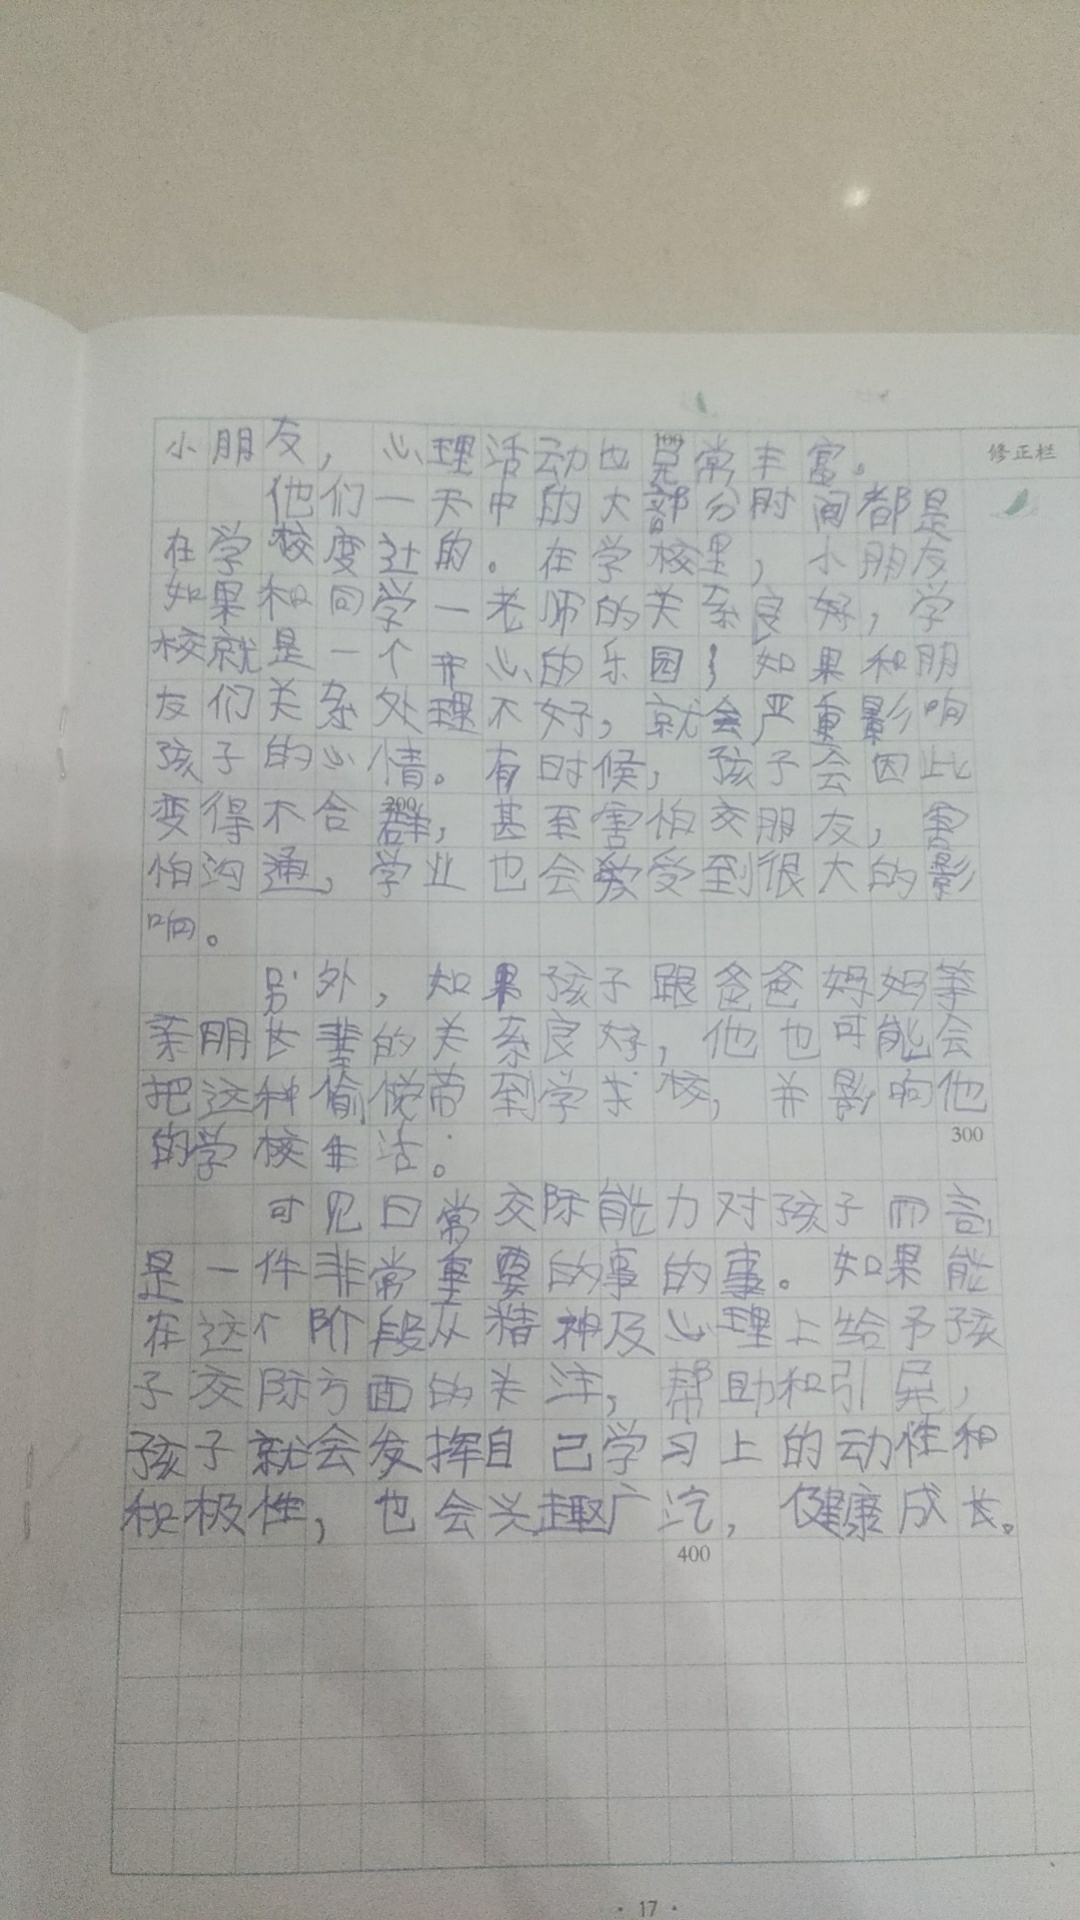 小朋友，心理活动也异常丰富。
修正栏
他们一天中的大部分时间都是
在学校度过的。在学校里，小朋友
如果和同学一老师的关系良好，学
校就是一个开心的乐园；如果和朋
友们关系处理不好，就会严重影响
孩子的心情。有时候，孩子会因此
变得不合群，甚至害怕交朋友，害
200
怕沟通，学业也会受到很大的影
响。
另外，如果孩子跟爸爸妈妈等
亲朋长辈的关系良好，他也可能会
把这种愉悦带到学校，并影响他
300
的学校生活。
可见日常交际能力对孩子而言
是一件非常重要的事的事。如果能
在这个阶段从精神及心理上给予孩
子交际方面的关注，帮助和引导，
孩子就会发挥自己学习上的动性和
积极性，也会兴趣广泛，健康成长。
400
·17·